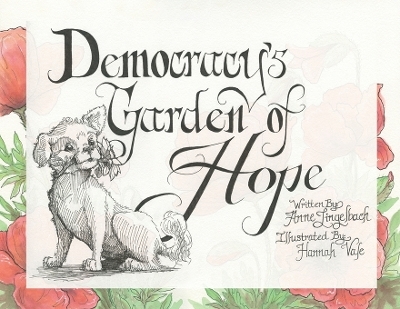 Democracy's
Garden of
Hope
Written By
Anne Lingelbach
Illustrated By
Hannah Vale